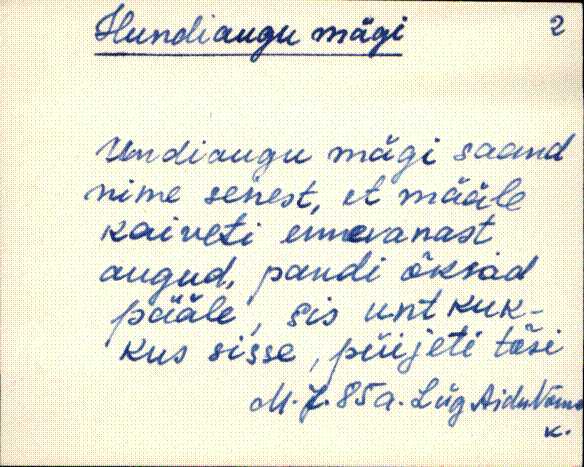 Hundiaugu mägi 2
Undiaugu mägi saand
nime senest, et määle
kaiveti ennevanast
augud, pandi õksad
pääle, sis unt kuk-
kus sisse, püijeti tõsi
M. J. 85 a. Lüg Aidu Võrnu
k.